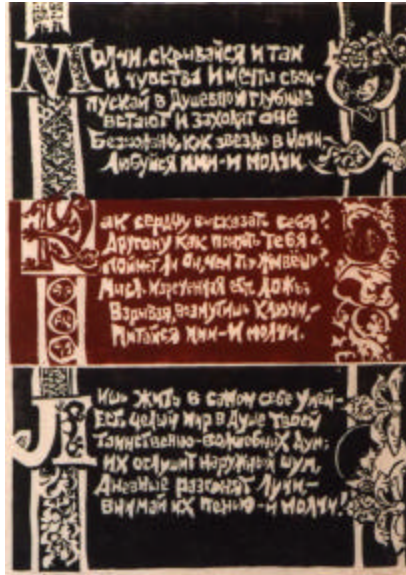 Молчи, скрывайся и таи
И чувства и мечты свои –
пускай в душевной глубине
встают и заходят оне
Безмолвно, как звезды в ночи.
Любуйся ими – и молчи.
Как сердцу высказать себя?
Другому как понять тебя?
поймет ли он, чем ты живешь?
Мысль изреченная есть ложь.
Взрывая, возмутишь ключи, –
Питайся ими – и молчи.
Лишь жить в самом себе умей –
Есть целый мир в душе твоей
таинственно-волшебных дум;
их оглушит наружный шум,
дневные разгонят лучи –
внимай их пенью – и молчи!